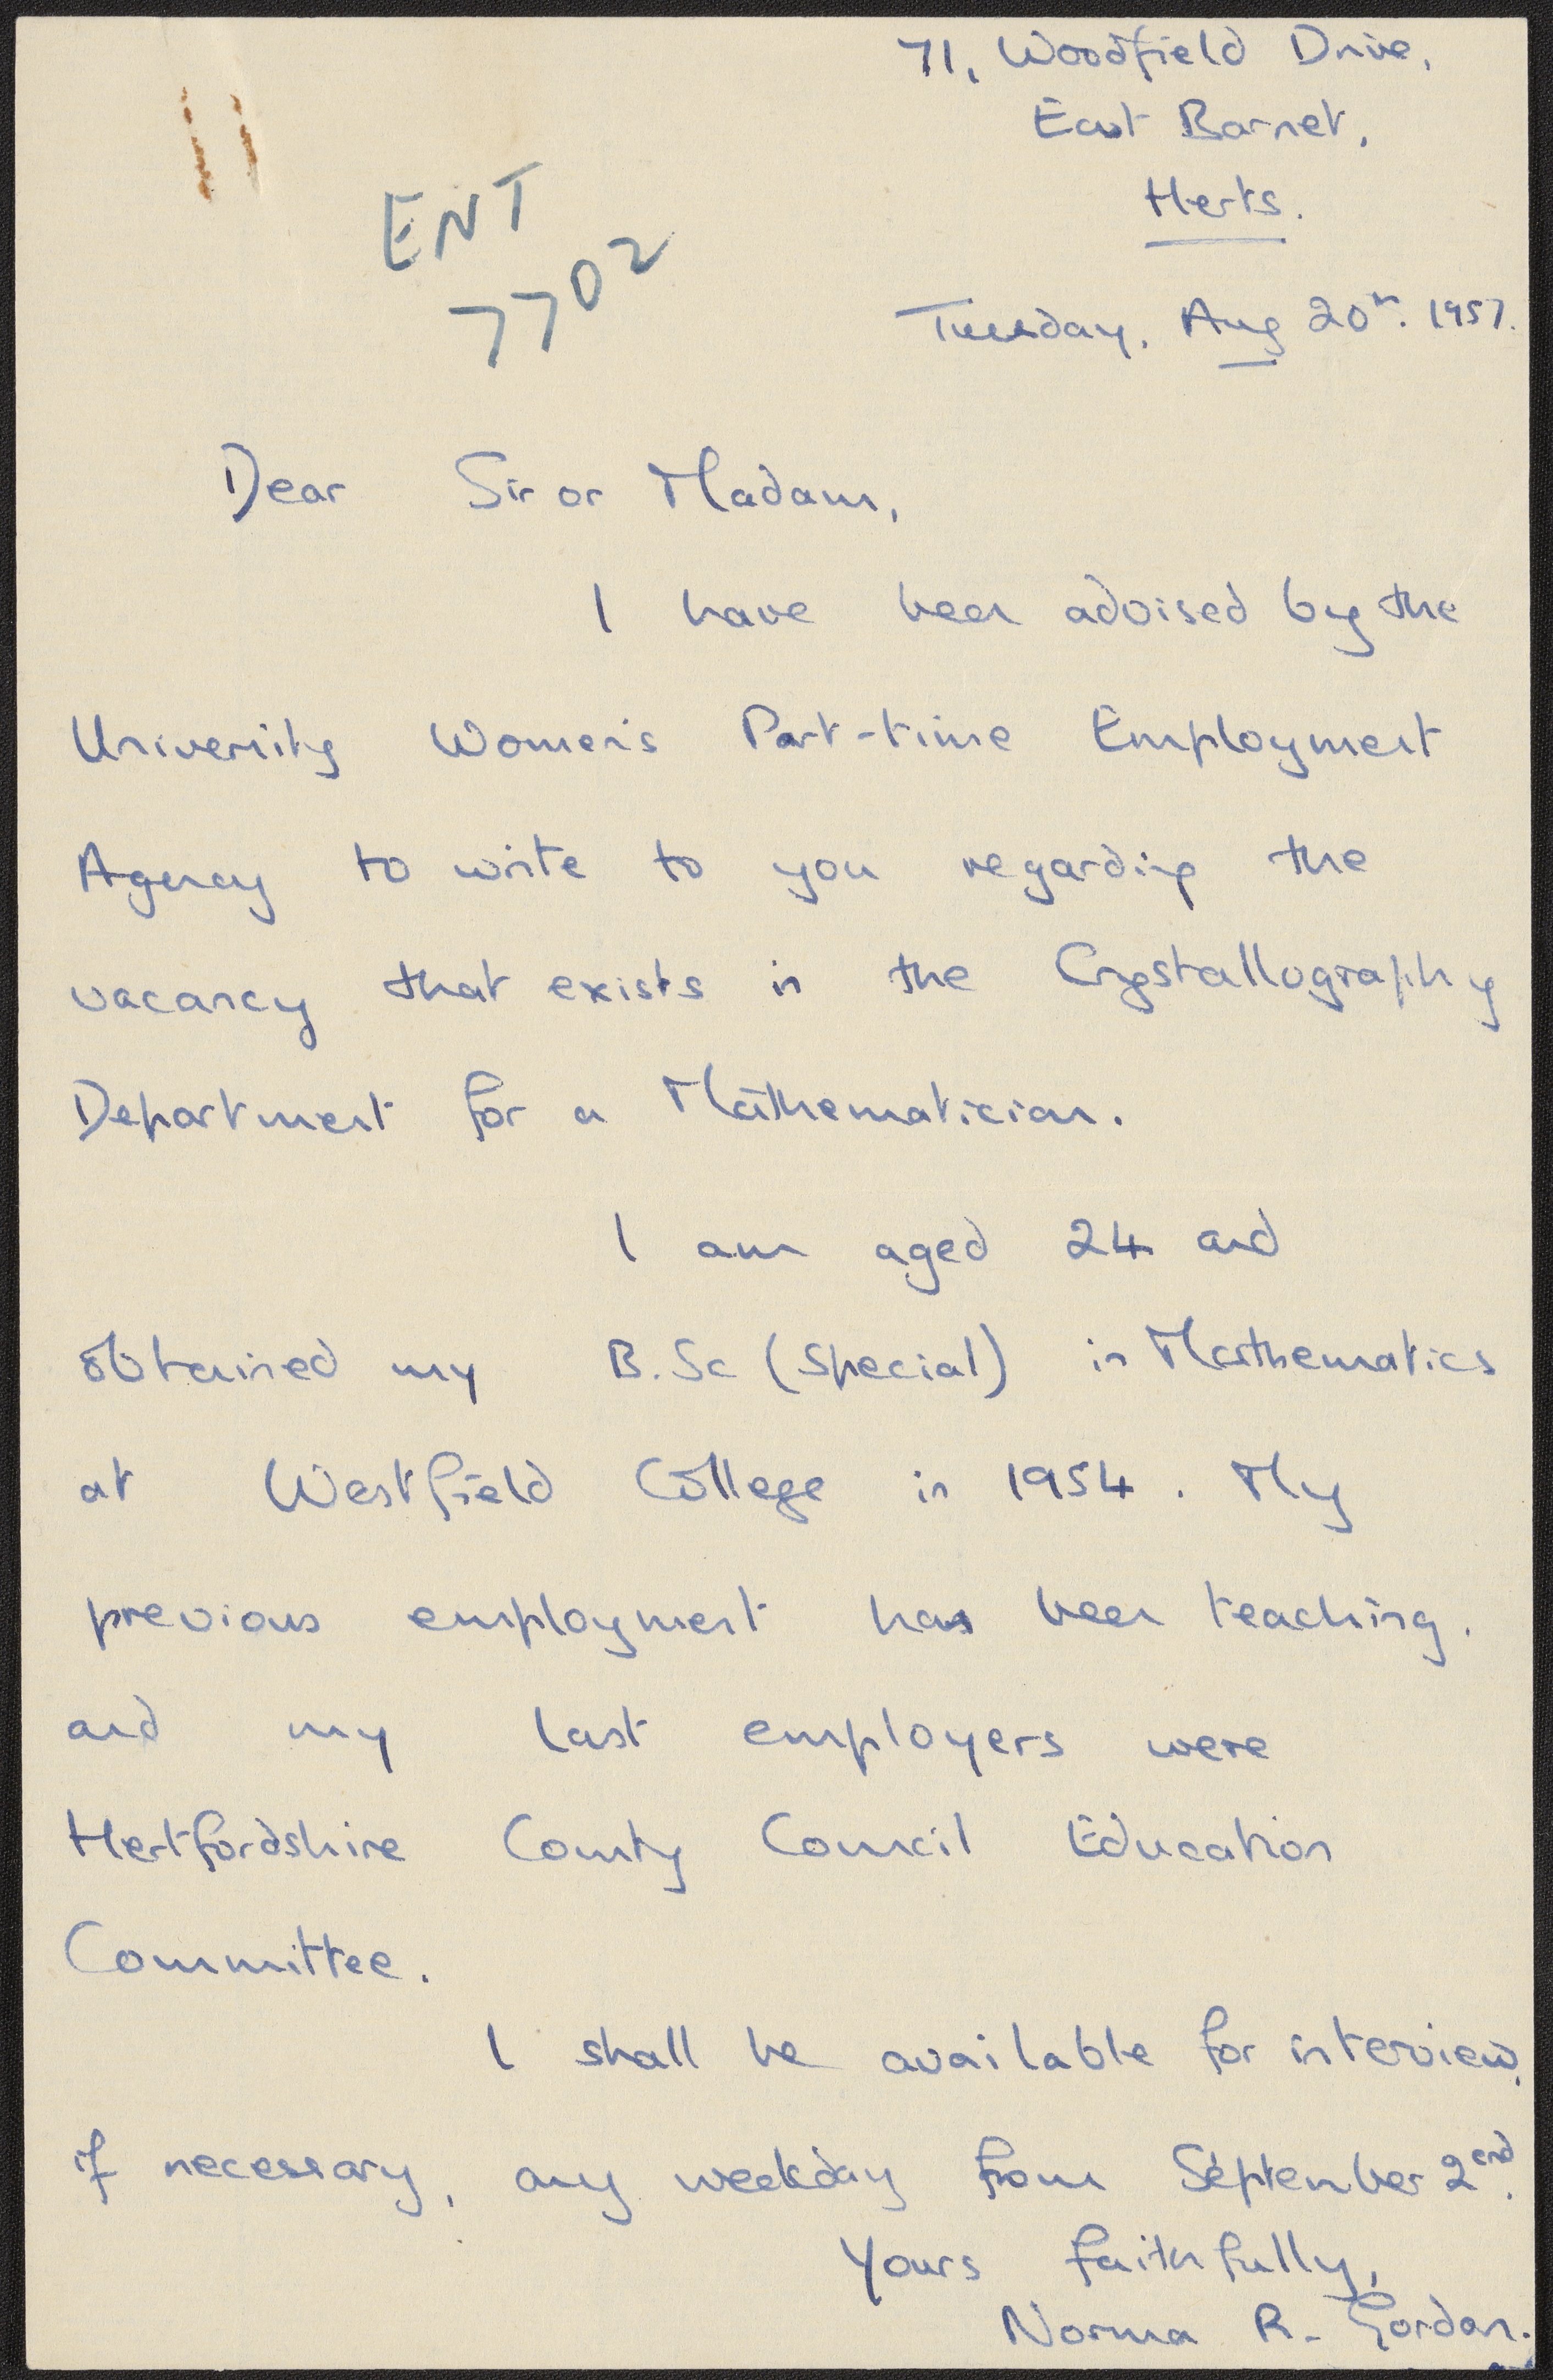 71, Woodfield Drive,
East Barnet,
Herts.
ENT
7702
Tuesday, Aug 20th. 1957.
Dear Sir or Madam,
I have been advised by the
University Women's Part-time Employment
Agency to write to you regarding the
vacancy that exists in the Crystallography
Department for a Mathematician.
I am aged 24 and
obtained my B.Sc (Special) in Mathematics
at Westfield College in 1954. My
previous employment has been teaching.
and my last employers were
Hertfordshire County Council Education
Committee.
I shall be available for interview,
if necessary, any weekday from September 2nd.
Yours faithfully,
Norma R. Gordon.